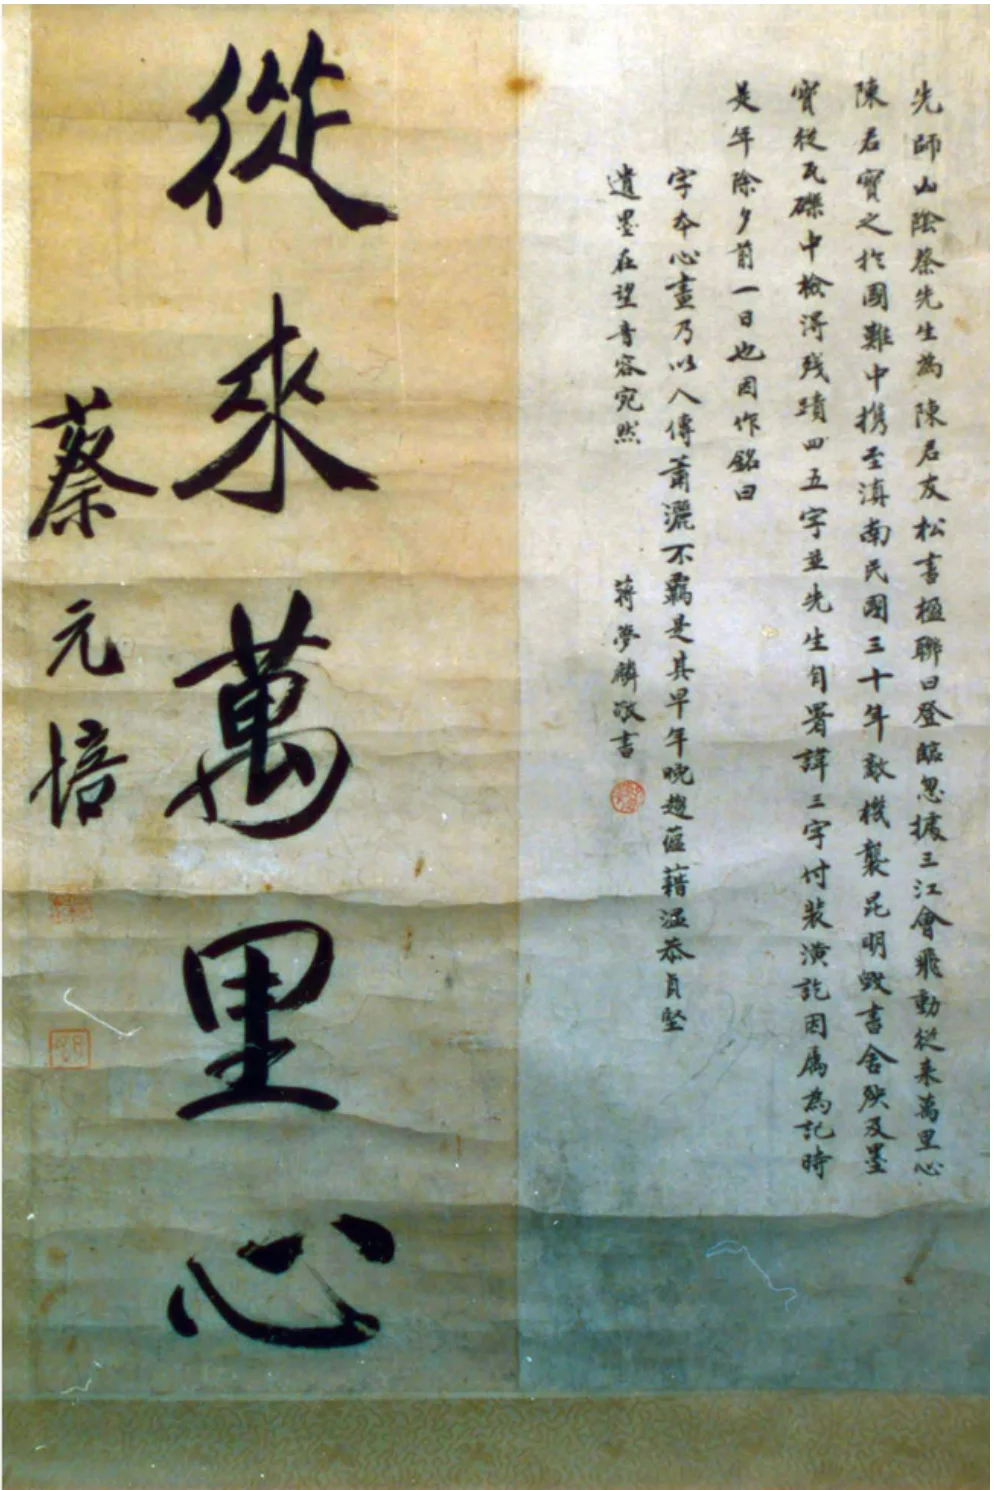 先師山陰蔡先生為陳君友松書楹聯曰登臨忽據三江會飛動從来萬里心
陳君寶之於國難中携至滇南民國三十年敵機襲昆明毀書舍殃及墨
寶從瓦礫中檢得残蹟四五字並先生自署諱三字付裝潢訖因属為記時
是年除夕前一日也因作銘曰
字本心畫乃以人傳蕭灑不羈是其早年晚趨蕴藉温恭貞堅
遺墨在望音容宛然 蔣夢麟敬書
從來萬里心
蔡元培